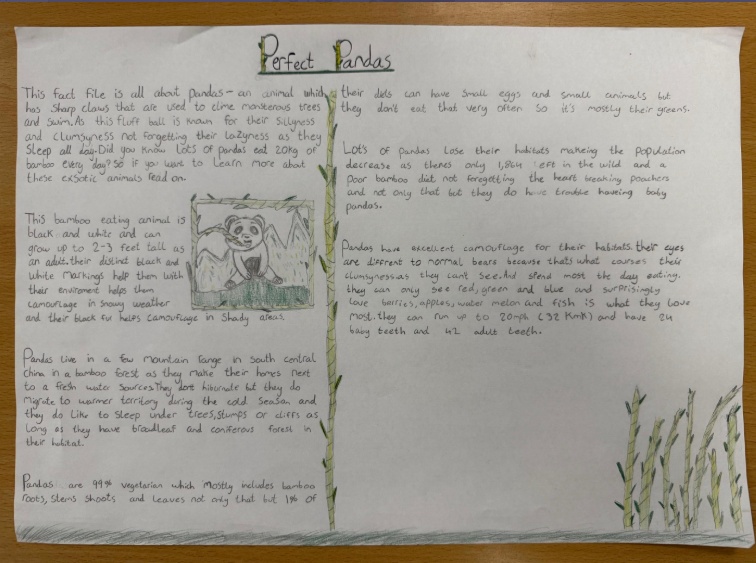 Perfect Pandas
This fact file is all about pandas - an animal which
has sharp claws that are used to clime monsterous trees
and swim. As this fluff ball is known for their sillyness
and clumsyness not forgetting their lazyness as they
sleep all day. Did you know lots of pandas eat 20kg of
bamboo every day? So if you want to learn more about
these exsotic animals read on.
This bamboo eating animal is
black and white and can
grow up to 2-3 feet tall as
an adult. their distinct black and
white markings help them with
their enviroment helps them
camouflage in snowy weather
and their black fur helps camouflage in shady areas.
Pandas live in a few mountain range in south central
China in a bamboo forest as they make their homes next
to a fresh water sources. They dont hibernate but they do
migrate to warmer territory during the cold season and
they do like to sleep under trees, stumps or cliffs as
long as they have broadleaf and coniferous forest in
their habitat.
Pandas are 99% vegetarian which mostly includes bamboo
roots, stems shoots and leaves not only that but 1% of
their diets can have small eggs and small animals but
they don't eat that very often so it's mostly their greens.
Lots of pandas lose their habitats makeing the population
decrease as theres only 1,864 left in the wild and a
poor bamboo diet not foregetting the heart breaking poachers
and not only that but they do have trouble haveing baby
pandas.
Pandas have excellent camouflage for their habitats. their eyes
are diffrent to normal bears because thats what courses their
clumsyness as they cant see. And spend most the day eating.
they can only see red, green and blue and surprisingly
love berries, apples, water melon and fish is what they love
most. they can run up to 20-ph (32 Kmk) and have 24
baby teeth and 42 adult teeth.